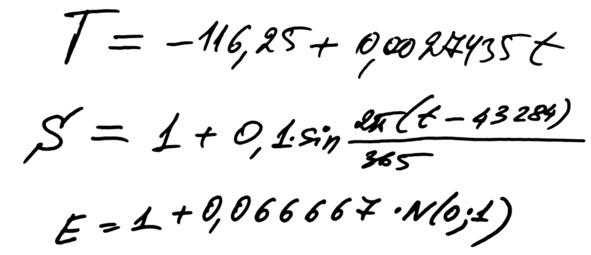 T = -116,25 + 0,0027435 t
S = 1 + 0,1·sin 2π(t - 43284)/365
E = 1 + 0,066667 · N(0;1)